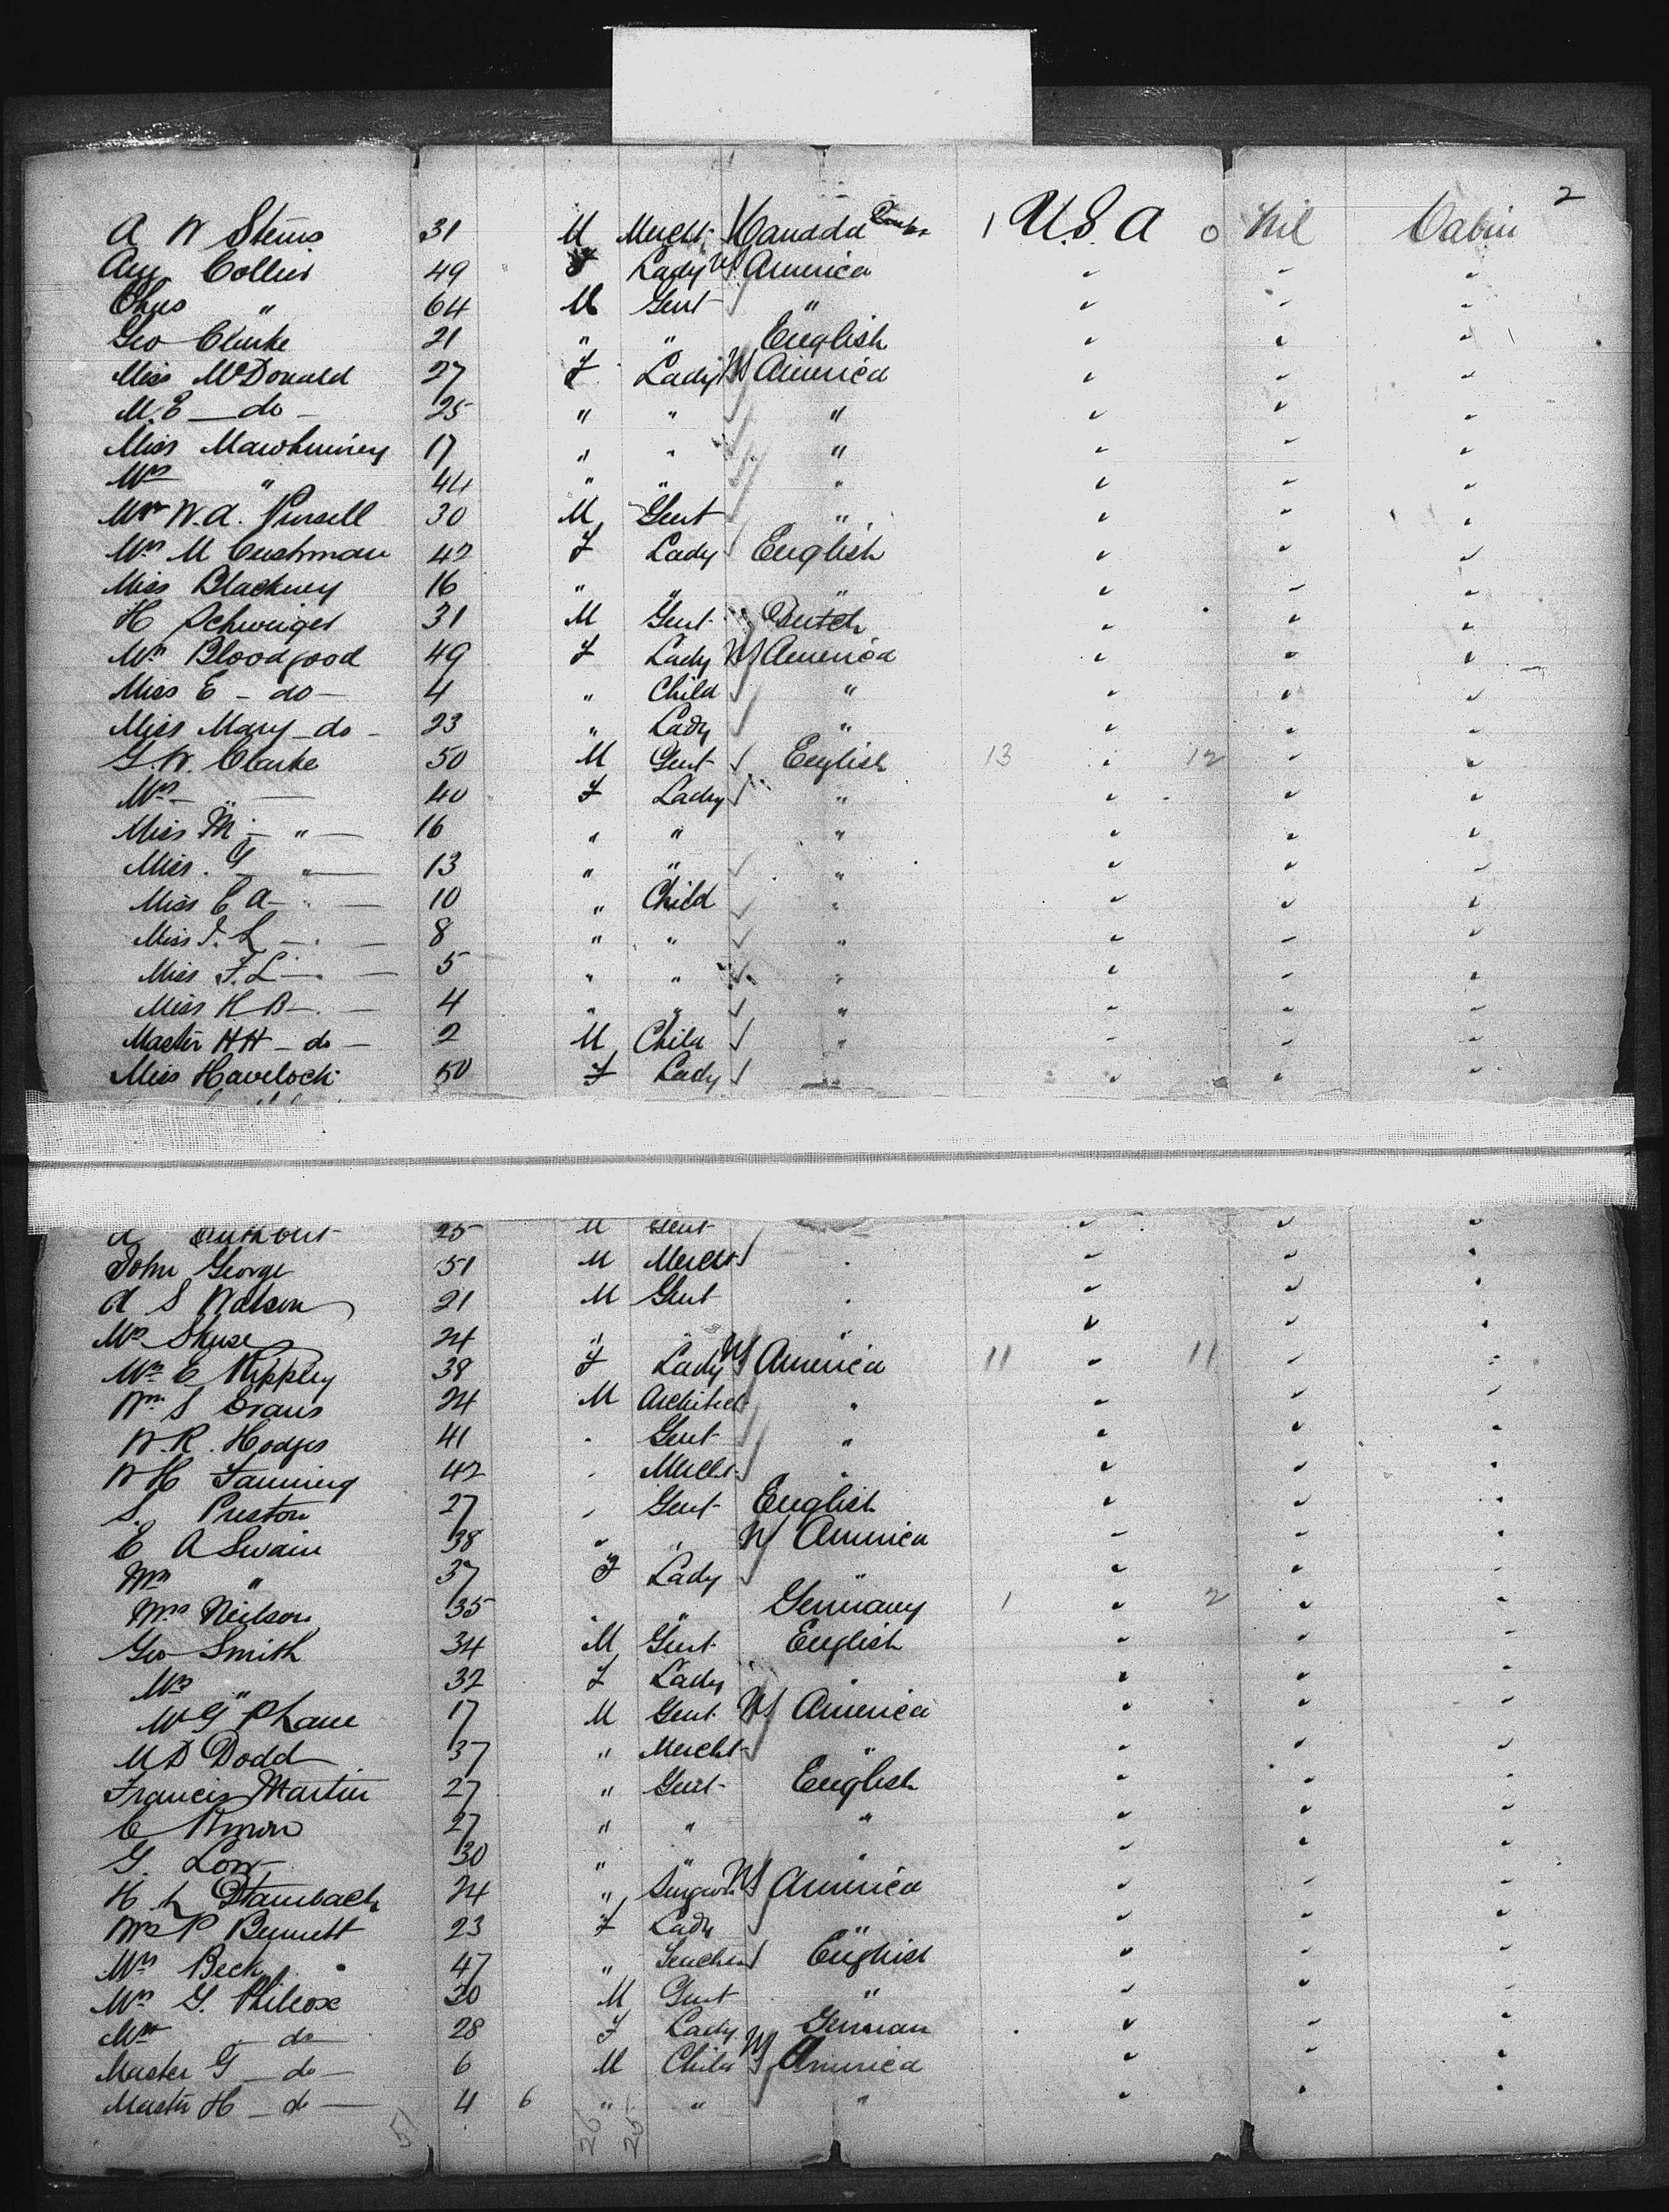 2
A W Steins 31 M Mercht Canada 1 U.S.A 0 Nil Cabin
Collier 49 F Lady US America " " "
Chas " 64 M Gent " " " "
Geo Clarke 21 " " English " " "
Miss McDonald 27 F Lady US America " " "
M. E — do — 25 " " " " " "
Miss Mawhinney 17 " " " " " "
Mrs " 44 " " " " " "
Mr W. A. Pursell 30 M Gent " " " "
Mrs M Cushman 42 F Lady English " " "
Miss Blackney 16 " " " " " "
H Schweiger 31 M Gent Dutch " " "
Mrs Bloodgood 49 F Lady US America " " "
Miss E — do — 4 " Child " " " "
Miss Mary — do — 23 " Lady " " " "
G. W. Clarke 50 M Gent English 13 " 12 " "
Mrs — " — 40 F Lady " " " "
Miss M — " — 16 " " " " " "
Miss. G — " — 13 " " " " " "
Miss E A — " — 10 " Child " " " "
Miss I. L — " — 8 " " " " " "
Miss F. L — " — 5 " " " " " "
Miss H. B — " — 4 " " " " " "
Master H H — do — 2 M Child " " " "
Miss Havelock 50 F Lady " " "
25 M Gent " " "
John George 51 M Mercht " " " "
A S Watson 21 M Gent " " " "
Skuse 24 " " " " " "
Mrs E Rippley 38 F Lady US America 11 " 11 " "
Wm S Evans 24 M Architect " " " "
W. R. Hodges 41 " Gent " " " "
W H Fanning 42 " Mercht " " " "
S. Preston 27 " Gent English " " "
E A Swain 38 " " US America " " "
Mrs " 37 F Lady " " " "
Mrs Neilson 35 " " Germany 1 " 2 " "
Geo Smith 34 M Gent English " " "
Mrs " 32 F Lady " " " "
W G P Lane 17 M Gent US America " " "
M D Dodd 37 " Mercht " " " "
Francis Martin 27 " Gent English " " "
C 27 " " " " " "
G. Low 30 " " " " " "
H L Stambach 24 " Surgeon US America " " "
Mrs P Bennett 23 F Lady " " " "
Mrs Beck 47 " Teacher English " " "
G. Philcox 30 M Gent " " " "
— do — 28 F Lady German " " "
Master G — do — 6 M Child US America " " "
Master H — do — 4 6 " " " " " "
51 26 25